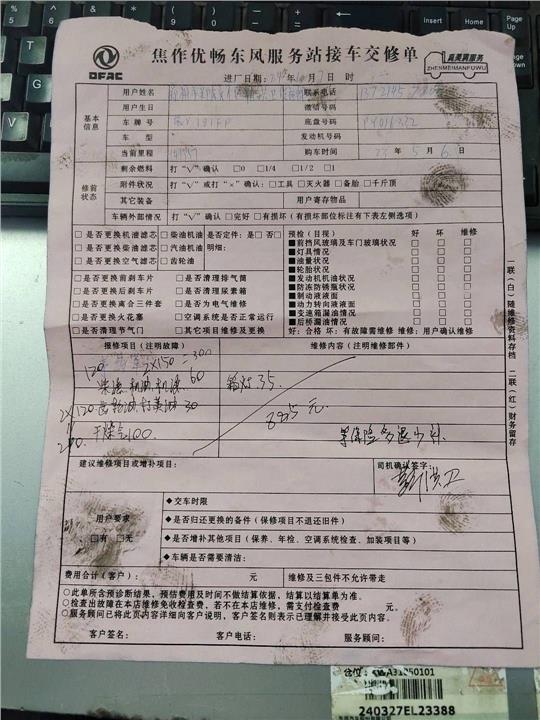 DFAC
焦作优畅东风服务站接车交修单
真美真服务
ZHENMEIZHENFUWU
进厂日期: 年 月 7 日 时
基本信息
用户姓名 联系电话
用户生日 微信号码
车牌号 底盘号码 PY016332
车型 发动机号码
当前里程 购车时间 23 年 5 月 6 日
修前状态
剩余燃料 打“√”确认 □0 □1/4 □1/2 □1
附件状况 打“√”或打“×”确认:□工具 □灭火器 □备胎 □千斤顶
其它装备 用户寄存物品
车辆外部情况 打“√”确认 □完好 □有损坏(有损坏部位标注有下表左侧选项)
□是否更换机油滤芯 □柴油机油 □是否定件:是□ 否□
□是否更换柴油滤芯 □汽油机油 明细:
□是否更换空气滤芯 □齿轮油
□是否更换前刹车片 □是否清理排气筒
□是否更换后刹车片 □是否清理尿素箱
□是否更换离合三件套 □是否为电气维修
□是否更换火花塞 □空调系统是否正常运行
□是否清理节气门 □其它项目维修及更换
预检(目视) 好 坏 维修
■前挡风玻璃及车门玻璃状况 □ □ □
■灯具情况 □ □ □
■油量状况 □ □ □
■轮胎状况 □ □ □
■发动机机油状况 □ □ □
■防冻防锈版状况 □ □ □
■制动液液面 □ □ □
■动力转向液液面 □ □ □
■变速箱漏油情况 □ □ □
■后桥漏油情况 □ □ □
好:合格 坏:有故障需维修 维修:用户确认维修
报修项目(注明故障) 维修内容(注明维修部件)
120 2X150=300
柴滤 机油 机滤 60
2X120 齿轮油 打黄油 30
240 干燥气 100
35
885元
等保险多退少补
建议维修项目或增补项目:
司机确认签字:
用户要求
□有 □无
◆交车时限
◆是否归还更换的备件(保修项目不退还旧件)
◆是否增补其他项目(保养、年检、空调系统检查、加装项目等)
◆车辆是否需要清洁:
费用合计(客户): 元 维修及三包件不允许带走
○此单所含预诊断结果,预估费用及时间不做结算依据,结算以结算单为准。
○检查出故障在本店维修免收检查费,若不在本店维修,需支付检查费 元。
○服务顾问已将此页内容详细向客户说明,客户签名则表示已理解并接受此页内容。
客户签名: 客户电话: 服务顾问:
一联(白)随维修资料存档
二联(红)财务留存
240327EL23388
Shift
Ctrl
Home
Pause
PgUp
PgDn
End